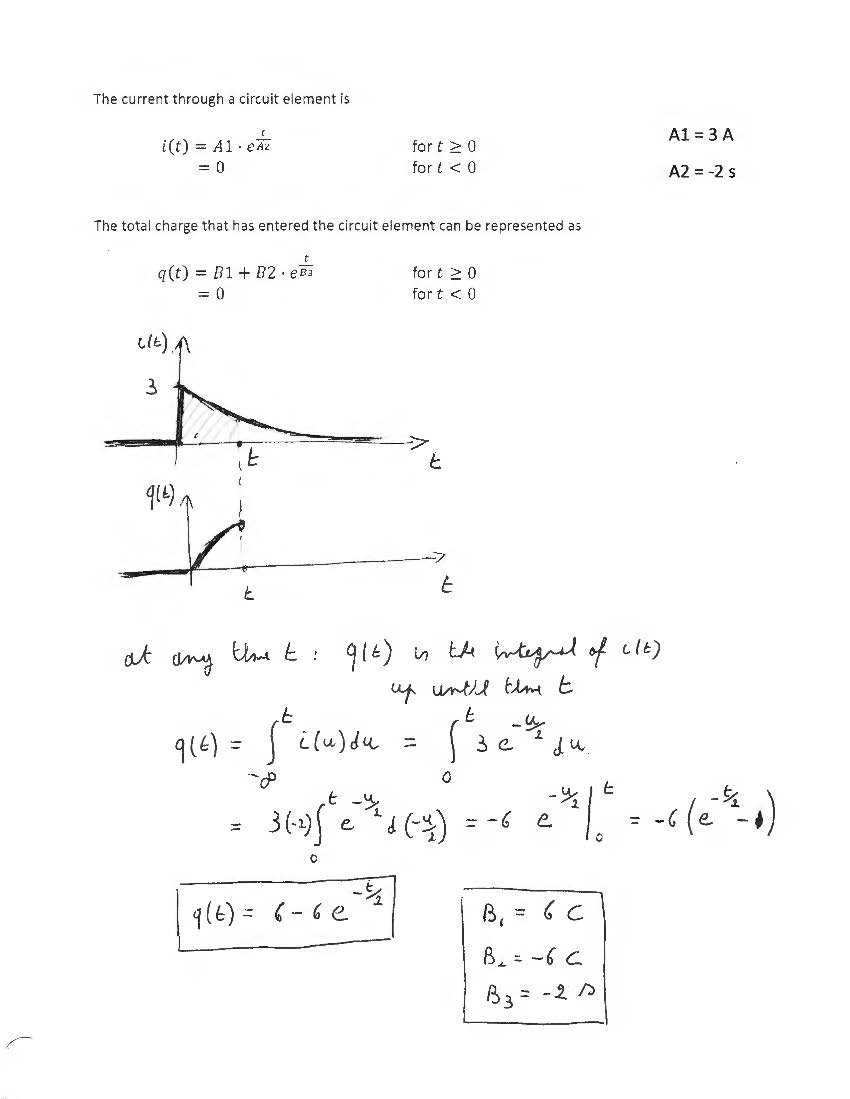 The current through a circuit element is
i(t) = A1 · e^(t/A2) for t ≥ 0 A1 = 3 A
= 0 for t < 0 A2 = -2 s
The total charge that has entered the circuit element can be represented as
q(t) = B1 + B2 · e^(t/B3) for t ≥ 0
= 0 for t < 0
i(t)
3
t
t
q(t)
t
t
at any time t : q(t) is the integral of i(t)
up until time t
q(t) = ∫_{-∞}^{t} i(u)du = ∫_{0}^{t} 3 e^{-u/2} du
= 3(-2)∫_{0}^{t} e^{-u/2} d(-u/2) = -6 e^{-u/2} |_{0}^{t} = -6(e^{-t/2} - 1)
q(t) = 6 - 6 e^{-t/2}
B₁ = 6 C
B₂ = -6 C
B₃ = -2 s